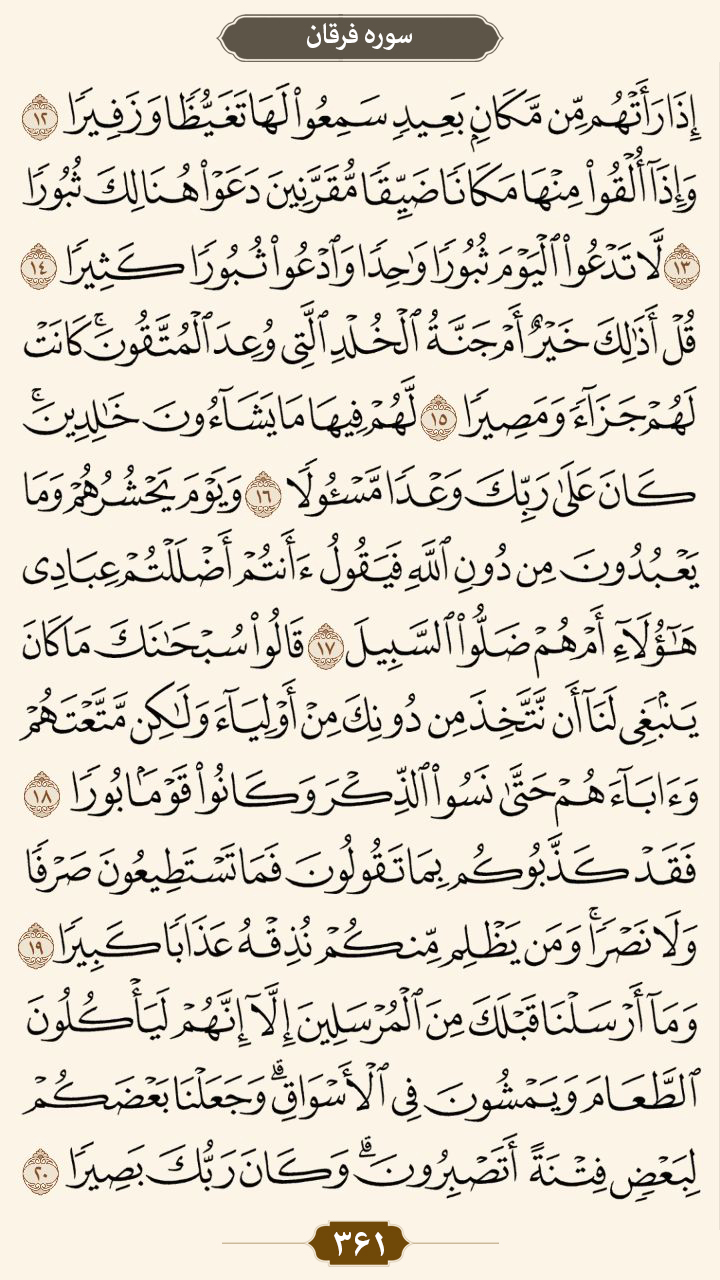 سوره فرقان
إِذَا رَأَتْهُم مِّن مَّكَانٍۭ بَعِيدٍ سَمِعُوا۟ لَهَا تَغَيُّظًا وَزَفِيرًا ١٢
وَإِذَآ أُلْقُوا۟ مِنْهَا مَكَانًا ضَيِّقًا مُّقَرَّنِينَ دَعَوْا۟ هُنَالِكَ ثُبُورًا
١٣ لَّا تَدْعُوا۟ ٱلْيَوْمَ ثُبُورًا وَٰحِدًا وَٱدْعُوا۟ ثُبُورًا كَثِيرًا ١٤
قُلْ أَذَٰلِكَ خَيْرٌ أَمْ جَنَّةُ ٱلْخُلْدِ ٱلَّتِى وُعِدَ ٱلْمُتَّقُونَ ۚ كَانَتْ
لَهُمْ جَزَآءً وَمَصِيرًا ١٥ لَّهُمْ فِيهَا مَا يَشَآءُونَ خَٰلِدِينَ ۚ
كَانَ عَلَىٰ رَبِّكَ وَعْدًا مَّسْـُٔولًا ١٦ وَيَوْمَ يَحْشُرُهُمْ وَمَا
يَعْبُدُونَ مِن دُونِ ٱللَّهِ فَيَقُولُ ءَأَنتُمْ أَضْلَلْتُمْ عِبَادِى
هَٰٓؤُلَآءِ أَمْ هُمْ ضَلُّوا۟ ٱلسَّبِيلَ ١٧ قَالُوا۟ سُبْحَٰنَكَ مَا كَانَ
يَنۢبَغِى لَنَآ أَن نَّتَّخِذَ مِن دُونِكَ مِنْ أَوْلِيَآءَ وَلَٰكِن مَّتَّعْتَهُمْ
وَءَابَآءَهُمْ حَتَّىٰ نَسُوا۟ ٱلذِّكْرَ وَكَانُوا۟ قَوْمًۢا بُورًا ١٨
فَقَدْ كَذَّبُوكُم بِمَا تَقُولُونَ فَمَا تَسْتَطِيعُونَ صَرْفًا
وَلَا نَصْرًا ۚ وَمَن يَظْلِم مِّنكُمْ نُذِقْهُ عَذَابًا كَبِيرًا ١٩
وَمَآ أَرْسَلْنَا قَبْلَكَ مِنَ ٱلْمُرْسَلِينَ إِلَّآ إِنَّهُمْ لَيَأْكُلُونَ
ٱلطَّعَامَ وَيَمْشُونَ فِى ٱلْأَسْوَاقِ ۗ وَجَعَلْنَا بَعْضَكُمْ
لِبَعْضٍ فِتْنَةً أَتَصْبِرُونَ ۗ وَكَانَ رَبُّكَ بَصِيرًا ٢٠
۳۶۱